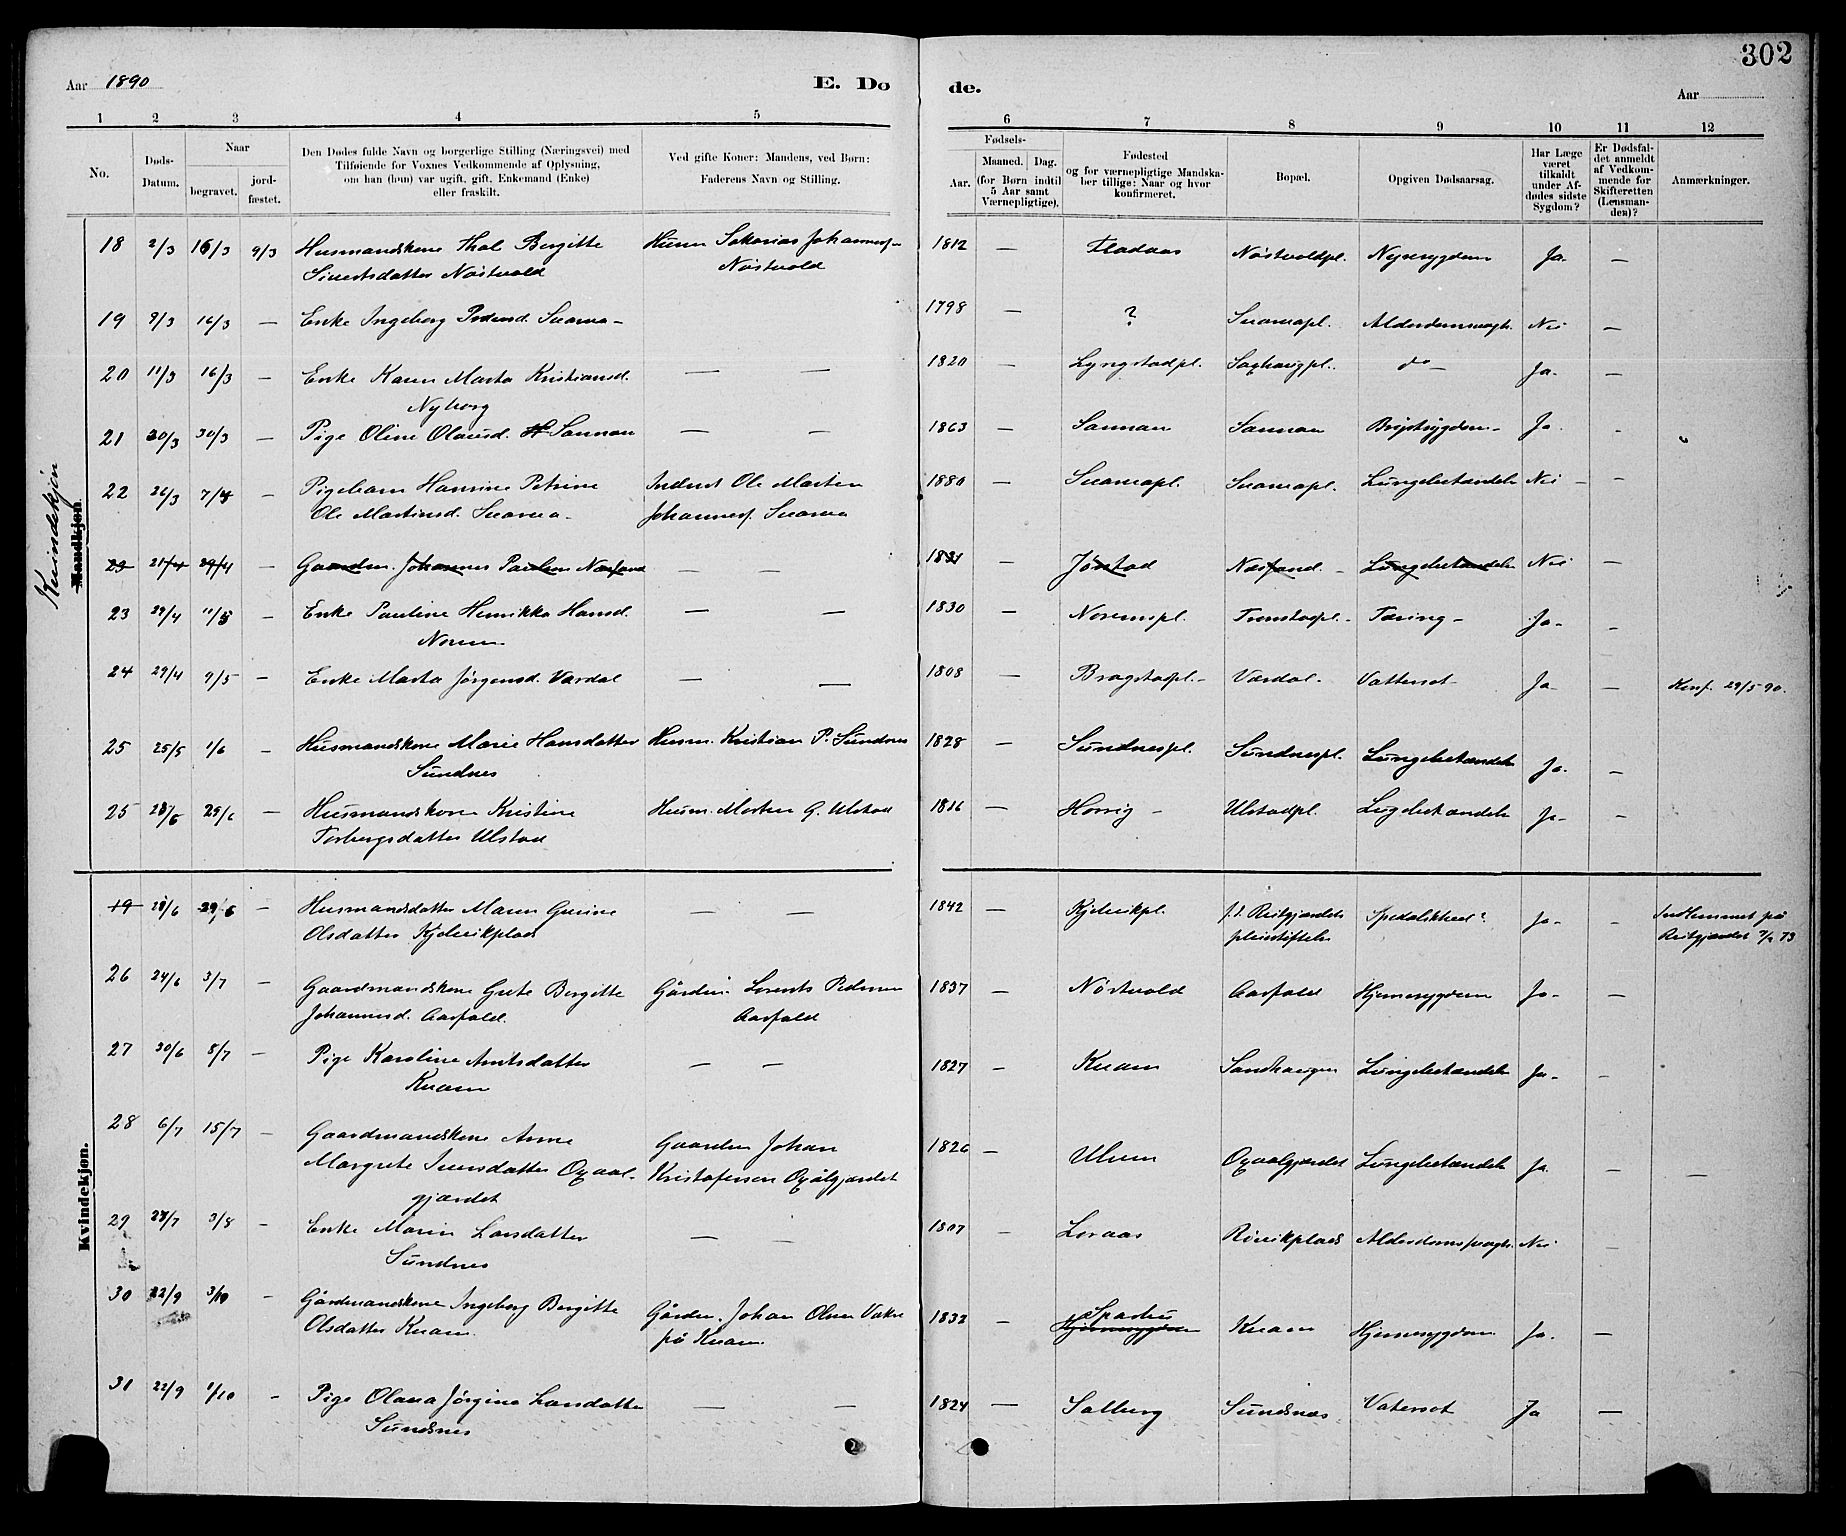 302
Aar 1890
E. Dø
de.
Aar
1 2 3 4 5
6 7 8 9 10 11 12
No.
Døds-Datum.
Naar
begravet.
jord-fæstet.
Den Dødes fulde Navn og borgerlige Stilling (Næringsvei) med
Tilføiende for Voxnes Vedkommende af Oplysning,
om han (hun) var ugift, gift, Enkemand (Enke)
eller fraskilt.
Ved gifte Koner: Mandens, ved Børn:
Faderens Navn og Stilling.
Fødsels-
Aar.
Maaned. Dag.
(for Børn indtil
5 Aar samt
Værnepligtige).
Fødested
og for værnepligtige Mandska-
ber tillige: Naar og hvor
konfirmeret.
Bopæl.
Opgiven Dødsaarsag.
Har Læge
været
tilkaldt
under Af-
dødes sidste
Sygdom?
Er Dødsfal-
det anmeldt
af Vedkom-
mende for
Skifteretten
(Lensman-
den)?
Anmærkninger.
Kvindekjøn
Mandkjøn
18 2/3 16/3 9/3 Husmandskone Bergitte Husm Sakarias Johannes- 1812 — Fladaas Nøstvoldpl. Nyresygdom Ja —
Sivertsdatter Nøstvold Nøstvold
19 9/3 16/3 — Enke Ingeborg Pedersd. Suarva 1798 — ? Alderdomssvagh. Nei —
20 11/3 16/3 — Enke Karen Marta Kristiansd. — — 1820 — Lyngstadpl. Saghaugpl. do — Ja —
Nyborg
21 20/3 30/3 — Pige Oline Olausd. Sannan — — 1863 — Sannan Sannan Brystsygdom — Ja —
22 26/3 7/4 — Pigebarn Hansine Petrine Inderst Ole Martin 1880 — Lungebetændelse Nei —
Ole Martinsd. Johannes.
23 21/4 29/4 Gaardm. Johannes Paulsen — — 1831 Jøstad Lungebetændelse Nei —
23 29/4 11/5 — Enke Pauline Henrikka Hansd. — — 1830 — Noremspl. Tronstadpl. Tæring — Ja —
Norem
24 29/4 9/5 — Enke Marta Jørgensd. Værdal — — 1808 — Bragstadpl. Værdal Vattersot Ja — Konf. 29/5 90.
25 25/5 1/6 — Husmandskone Marie Hansdatter Husm. Kristian P. Sundnes 1828 — Sundnespl. Sundnespl. Lungebetændelse Ja —
Sundnes
25 28/6 29/6 — Husmandskone Kristine Husm. Morten G. Ulstad 1816 — Ulstadpl. Lugebetændelse Ja —
Torbergsdatter Ulstad
Kvindekjøn.
19 28/6 29/6 — Husmandsdatter Maren Gurine — — 1842 — Kjølvikpl. f. t. Reitgjærdets Spedalskhed? Ja — Indkommet på
Olsdatter Kjølvikplads pleiestiftelse Reitgjærdet 73
26 24/6 3/7 — Gaardmandskone Grete Bergitte Gårdm. Lorents Pedersen 1837 — Nøstvold Aasfald Hjernesygdom Ja —
Johannesd. Aasfald. Aasfald
27 30/6 8/7 — Pige Karoline Arntsdatter — — 1827 — Kvam Sandhaugen Lungebetændelse Ja —
Kvam
28 6/7 15/7 — Gaardmandskone Anne Gaardm Johan 1826 — Ulven Oxaalgjærdet Lungebetændelse Ja — —
Margrete Iversdatter Oxaal- Kristofersen Oxålgjærdet
gjærdet
29 28/7 3/8 — Enke Marie Larsdatter — — 1807 — Loraas Alderdomssvagh. Nei —
Sundnes
30 22/9 3/10 — Gårdmandskone Ingeborg Bergitte Gårdm. Johan Olsen Vakre 1832 — Hjernesygdom Kvam Hjernesygdom Ja —
Olsdatter Kvam. på Kvam.
31 22/9 1/10 — Pige Olava Jørgine Larsdatter — — 1824 — Salberg Sundsnæs Vatersot Ja —
Sundsnes